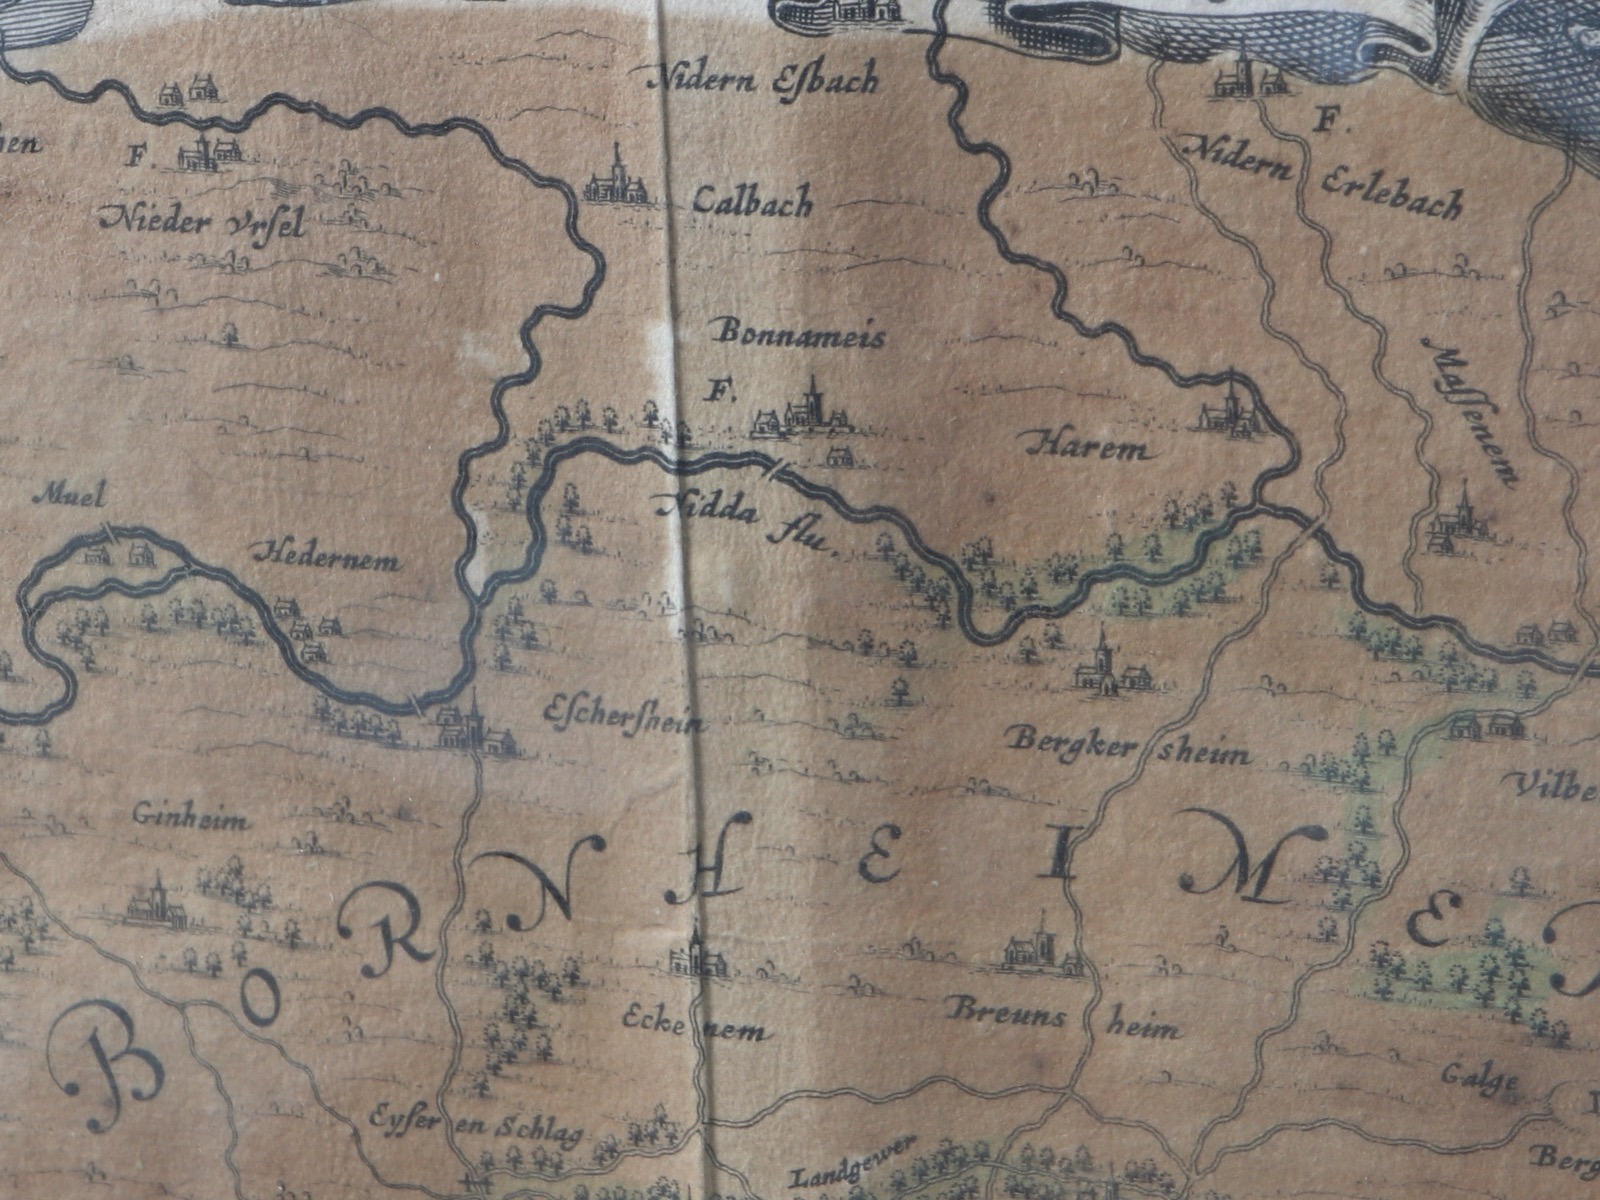 Nidern Eſbach
F.
hen
F.
Nidern Erlebach
Nieder Vrſel
Calbach
Bonnameis
F.
Maſſenem
Harem
Muel
Nidda flu.
Hedernem
Eſcherſhein
Bergkersheim
Vilbe
Ginheim
BORNHEIME
Eckenem
Breunsheim
Galge
Eyſeren Schlag
Landgewer
Berg